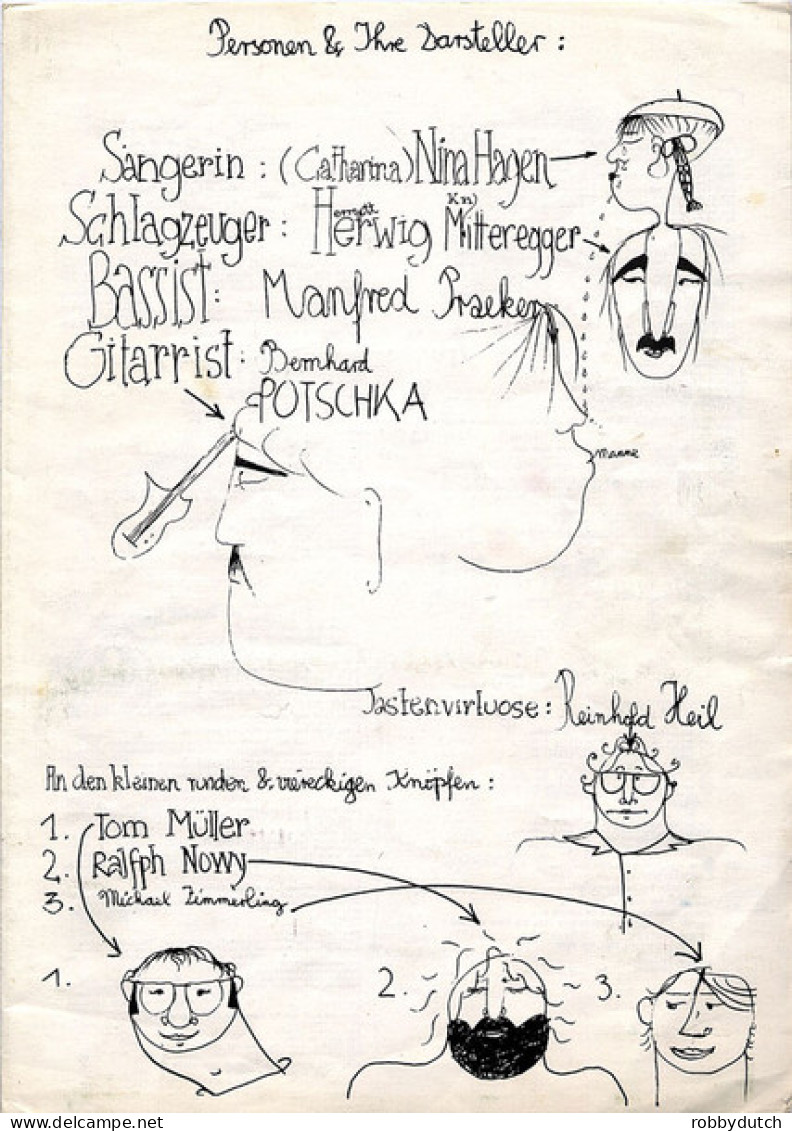 Personen & Ihre Darsteller :
Sängerin : (Catharina) Nina Hagen
Schlagzeuger : Herwig Mitteregger
Bassist : Manfred Praeker
Gitarrist : Bernhard
POTSCHKA
Manne
Tastenvirtuose : Reinhold Heil
An den kleinen runden & viereckigen Knöpfen :
1. Tom Müller
2. Ralfph Nowy
3. Michael Zimmerling
1.
2.
3.
robbydutch